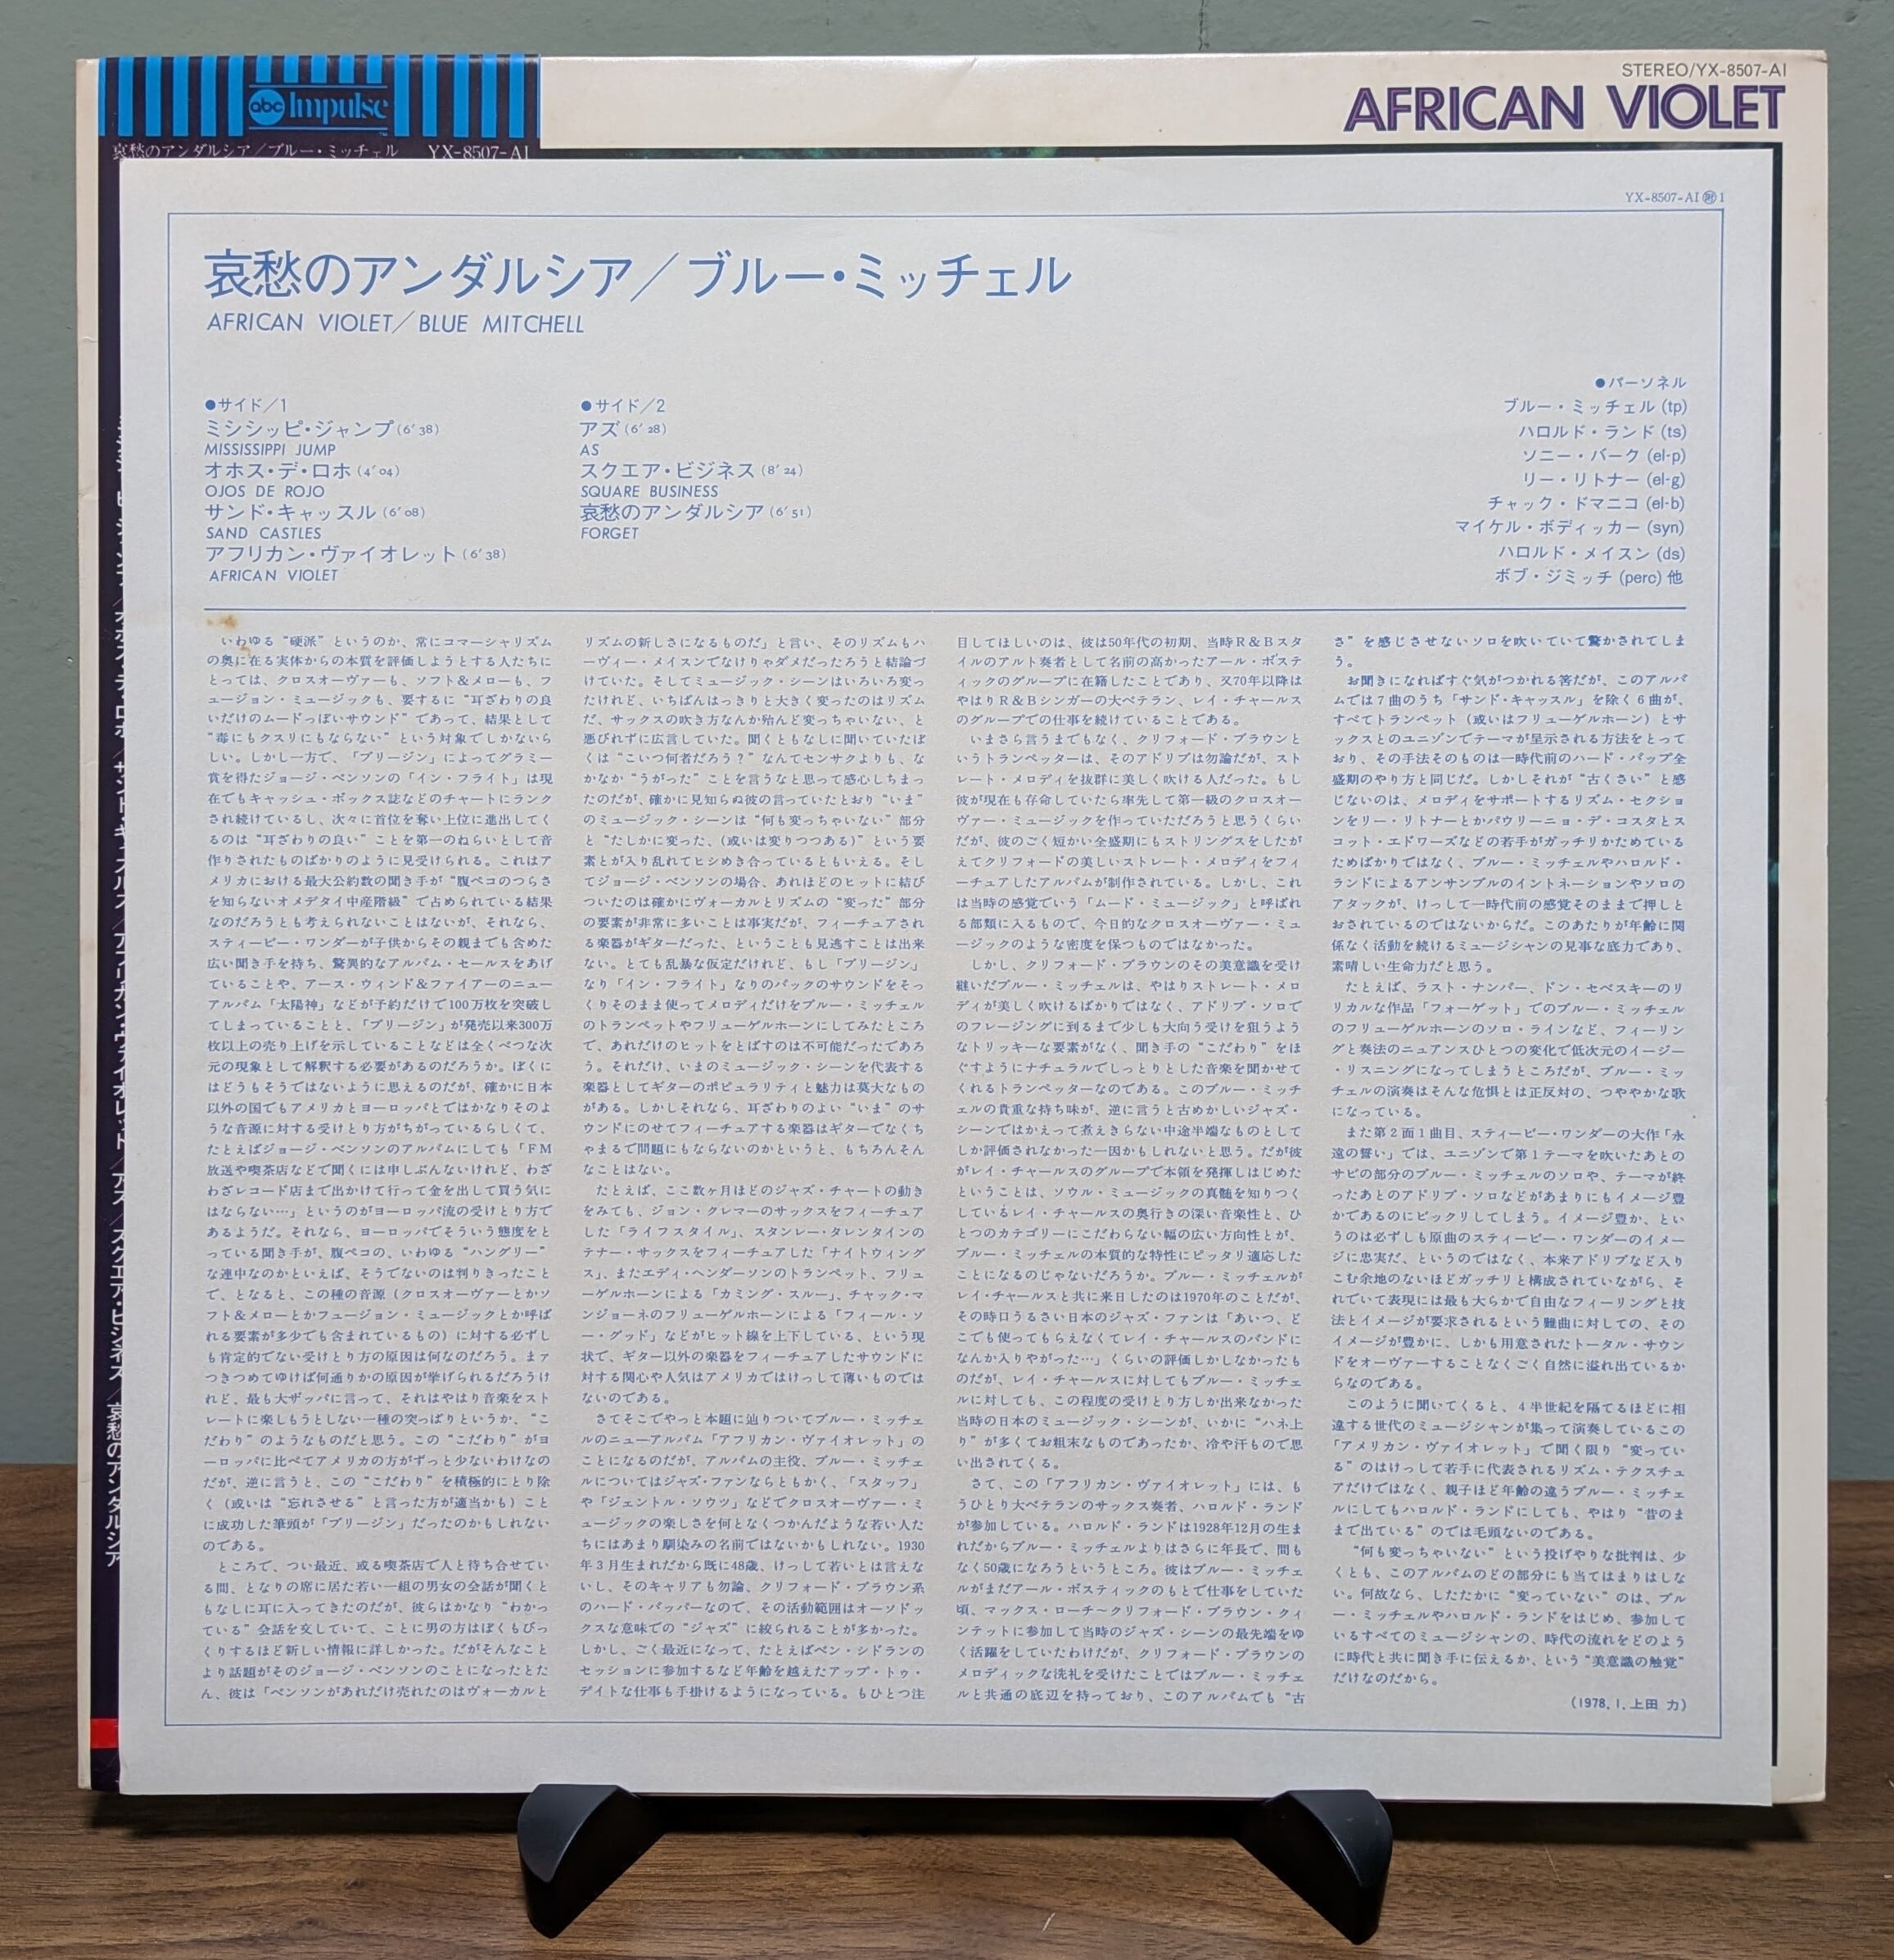 STEREO/YX-8507-AI
AFRICAN VIOLET
abc Impulse
哀愁のアンダルシア／ブルー・ミッチェル YX-8507-AI
YX-8507-AI㊞1
哀愁のアンダルシア／ブルー・ミッチェル
AFRICAN VIOLET／BLUE MITCHELL
●サイド／1
ミシシッピ・ジャンプ(6′38)
MISSISSIPPI JUMP
オホス・デ・ロホ(4′04)
OJOS DE ROJO
サンド・キャッスル(6′08)
SAND CASTLES
アフリカン・ヴァイオレット(6′38)
AFRICAN VIOLET
●サイド／2
アズ(6′28)
AS
スクエア・ビジネス(8′24)
SQUARE BUSINESS
哀愁のアンダルシア(6′51)
FORGET
●パーソネル
ブルー・ミッチェル(tp)
ハロルド・ランド(ts)
ソニー・バーク(el-p)
リー・リトナー(el-g)
チャック・ドマニコ(el-b)
マイケル・ボディッカー(syn)
ハロルド・メイスン(ds)
ボブ・ジミッチ(perc)他
いわゆる“硬派”というのか、常にコマーシャリズム
の奥に在る実体からの本質を評価しようとする人たちに
とっては、クロスオーヴァーも、ソフト&メローも、フ
ュージョン・ミュージックも、要するに“耳ざわりの良
いだけのムードっぽいサウンド”であって、結果として
“毒にもクスリにもならない”という対象でしかないら
しい。しかし一方で、「ブリージン」によってグラミー
賞を得たジョージ・ベンソンの「イン・フライト」は現
在でもキャッシュ・ボックス誌などのチャートにランク
され続けているし、次々に首位を奪い上位に進出してく
るのは“耳ざわりの良い”ことを第一のねらいとして音
作りされたものばかりのように見受けられる。これはア
メリカにおける最大公約数の聞き手が“腹ペコのつらさ
を知らないオメデタイ中産階級”で占められている結果
なのだろうとも考えられないことはないが、それなら、
スティービー・ワンダーが子供からその親までも含めた
広い聞き手を持ち、驚異的なアルバム・セールスをあげ
ていることや、アース・ウィンド&ファイアーのニュー
アルバム「太陽神」などが予約だけで100万枚を突破し
てしまっていることと、「ブリージン」が発売以来300万
枚以上の売り上げを示していることなどは全くべつな次
元の現象として解釈する必要があるのだろうか。ぼくに
はどうもそうではないように思えるのだが、確かに日本
以外の国でもアメリカとヨーロッパとではかなりそのよ
うな音源に対する受けとり方がちがっているらしくて、
たとえばジョージ・ベンソンのアルバムにしても「FM
放送や喫茶店などで聞くには申しぶんないけれど、わざ
わざレコード店まで出かけて行って金を出して買う気に
はならない…」というのがヨーロッパ流の受けとり方で
あるようだ。それなら、ヨーロッパでそういう態度をと
っている聞き手が、腹ペコの、いわゆる“ハングリー”
な連中なのかといえば、そうでないのは判りきったこと
で、となると、この種の音源(クロスオーヴァーとかソ
フト&メローとかフュージョン・ミュージックとか呼ば
れる要素が多少でも含まれているもの)に対する必ずし
も肯定的でない受けとり方の原因は何なのだろう。まァ
つきつめてゆけば何通りかの原因が挙げられるだろうけ
れど、最も大ザッパに言って、それはやはり音楽をスト
レートに楽しもうとしない一種の突っぱりというか、“こ
だわり”のようなものだと思う。この“こだわり”がヨ
ーロッパに比べてアメリカの方がずっと少ないわけなの
だが、逆に言うと、この“こだわり”を積極的にとり除
く(或いは“忘れさせる”と言った方が適当かも)こと
に成功した筆頭が「ブリージン」だったのかもしれない
のである。
ところで、つい最近、或る喫茶店で人と待ち合せてい
る間、となりの席に居た若い一組の男女の会話が聞くと
もなしに耳に入ってきたのだが、彼らはかなり“わかっ
ている”会話を交していて、ことに男の方はぼくもびっ
くりするほど新しい情報に詳しかった。だがそんなこと
より話題がそのジョージ・ベンソンのことになったとた
ん、彼は「ベンソンがあれだけ売れたのはヴォーカルと
リズムの新しさになるものだ」と言い、そのリズムもハ
ーヴィー・メイスンでなけりゃダメだったろうと結論づ
けていた。そしてミュージック・シーンはいろいろ変っ
たけれど、いちばんはっきりと大きく変ったのはリズム
だ、サックスの吹き方なんか殆んど変っちゃいない、と
悪びれずに広言していた。聞くともなしに聞いていたぼ
くは“こいつ何者だろう？”なんてセンサクよりも、な
かなか“うがった”ことを言うなと思って感心しちまっ
たのだが、確かに見知らぬ彼の言っていたとおり“いま”
のミュージック・シーンは“何も変っちゃいない”部分
と“たしかに変った、(或いは変りつつある)”という要
素とが入り乱れてヒシめき合っているともいえる。そし
てジョージ・ベンソンの場合、あれほどのヒットに結び
ついたのは確かにヴォーカルとリズムの“変った”部分
の要素が非常に多いことは事実だが、フィーチュアされ
る楽器がギターだった、ということも見逃すことは出来
ない。とても乱暴な仮定だけれど、もし「ブリージン」
なり「イン・フライト」なりのバックのサウンドをそっ
くりそのまま使ってメロディだけをブルー・ミッチェル
のトランペットやフリューゲルホーンにしてみたところ
で、あれだけのヒットをとばすのは不可能だったであろ
う。それだけ、いまのミュージック・シーンを代表する
楽器としてギターのポピュラリティと魅力は莫大なもの
がある。しかしそれなら、耳ざわりのよい“いま”のサ
ウンドにのせてフィーチュアする楽器はギターでなくち
ゃまるで問題にもならないのかというと、もちろんそん
なことはない。
たとえば、ここ数ヶ月ほどのジャズ・チャートの動き
をみても、ジョン・クレマーのサックスをフィーチュア
した「ライフスタイル」、スタンレー・タレンタインの
テナー・サックスをフィーチュアした「ナイトウィング
ス」、またエディ・ヘンダーソンのトランペット、フリュ
ーゲルホーンによる「カミング・スルー」、チャック・マ
ンジョーネのフリューゲルホーンによる「フィール・ソ
ー・グッド」などがヒット線を上下している、という現
状で、ギター以外の楽器をフィーチュアしたサウンドに
対する関心や人気はアメリカではけっして薄いものでは
ないのである。
さてそこでやっと本題に辿りついてブルー・ミッチェ
ルのニューアルバム「アフリカン・ヴァイオレット」の
ことになるのだが、アルバムの主役、ブルー・ミッチェ
ルについてはジャズ・ファンならともかく、「スタッフ」
や「ジェントル・ソウツ」などでクロスオーヴァー・ミ
ュージックの楽しさを何となくつかんだような若い人た
ちにはあまり馴染みの名前ではないかもしれない。1930
年3月生まれだから既に48歳、けっして若いとは言えな
いし、そのキャリアも勿論、クリフォード・ブラウン系
のハード・バッパーなので、その活動範囲はオーソドッ
クスな意味での“ジャズ”に絞られることが多かった。
しかし、ごく最近になって、たとえばベン・シドランの
セッションに参加するなど年齢を越えたアップ・トゥ・
デイトな仕事も手掛けるようになっている。もひとつ注
目してほしいのは、彼は50年代の初期、当時R&Bスタ
イルのアルト奏者として名前の高かったアール・ボステ
ィックのグループに在籍したことであり、又70年以降は
やはりR&Bシンガーの大ベテラン、レイ・チャールス
のグループでの仕事を続けていることである。
いまさら言うまでもなく、クリフォード・ブラウンと
いうトランペッターは、そのアドリブは勿論だが、スト
レート・メロディを抜群に美しく吹ける人だった。もし
彼が現在も存命していたら率先して第一級のクロスオー
ヴァー・ミュージックを作っていただろうと思うくらい
だが、彼のごく短かい全盛期にもストリングスをしたが
えてクリフォードの美しいストレート・メロディをフィ
ーチュアしたアルバムが制作されている。しかし、これ
は当時の感覚でいう「ムード・ミュージック」と呼ばれ
る部類に入るもので、今日的なクロスオーヴァー・ミュ
ージックのような密度を保つものではなかった。
しかし、クリフォード・ブラウンのその美意識を受け
継いだブルー・ミッチェルは、やはりストレート・メロ
ディが美しく吹けるばかりではなく、アドリブ・ソロで
のフレージングに到るまで少しも大向う受けを狙うよう
なトリッキーな要素がなく、聞き手の“こだわり”をほ
ぐすようにナチュラルでしっとりとした音楽を聞かせて
くれるトランペッターなのである。このブルー・ミッチ
ェルの貴重な持ち味が、逆に言うと古めかしいジャズ・
シーンではかえって煮えきらない中途半端なものとして
しか評価されなかった一因かもしれないと思う。だが彼
がレイ・チャールスのグループで本領を発揮しはじめた
ということは、ソウル・ミュージックの真髄を知りつく
しているレイ・チャールスの奥行きの深い音楽性と、ひ
とつのカテゴリーにこだわらない幅の広い方向性とが、
ブルー・ミッチェルの本質的な特性にピッタリ適応した
ことになるのじゃないだろうか。ブルー・ミッチェルが
レイ・チャールスと共に来日したのは1970年のことだが、
その時口うるさい日本のジャズ・ファンは「あいつ、ど
こでも使ってもらえなくてレイ・チャールスのバンドに
なんか入りやがった…」くらいの評価しかしなかったも
のだが、レイ・チャールスに対してもブルー・ミッチェ
ルに対しても、この程度の受けとり方しか出来なかった
当時の日本のミュージック・シーンが、いかに“ハネ上
り”が多くてお粗末なものであったか、冷や汗もので思
い出されてくる。
さて、この「アフリカン・ヴァイオレット」には、も
うひとり大ベテランのサックス奏者、ハロルド・ランド
が参加している。ハロルド・ランドは1928年12月の生ま
れだからブルー・ミッチェルよりはさらに年長で、間も
なく50歳になろうというところ。彼はブルー・ミッチェ
ルがまだアール・ボスティックのもとで仕事をしていた
頃、マックス・ローチ～クリフォード・ブラウン・クィ
ンテットに参加して当時のジャズ・シーンの最先端をゆ
く活躍をしていたわけだが、クリフォード・ブラウンの
メロディックな洗礼を受けたことではブルー・ミッチェ
ルと共通の底辺を持っており、このアルバムでも“古
さ”を感じさせないソロを吹いていて驚かされてしま
う。
お聞きになればすぐ気がつかれる筈だが、このアルバ
ムでは7曲のうち「サンド・キャッスル」を除く6曲が、
すべてトランペット(或いはフリューゲルホーン)とサ
ックスとのユニゾンでテーマが呈示される方法をとって
おり、その手法そのものは一時代前のハード・バップ全
盛期のやり方と同じだ。しかしそれが“古くさい”と感
じないのは、メロディをサポートするリズム・セクショ
ンをリー・リトナーとかパウリーニョ・デ・コスタとス
コット・エドワーズなどの若手がガッチリかためている
ためばかりではなく、ブルー・ミッチェルやハロルド・
ランドによるアンサンブルのイントネーションやソロの
アタックが、けっして一時代前の感覚そのままで押しと
おされているのではないからだ。このあたりが年齢に関
係なく活動を続けるミュージシャンの見事な底力であり、
素晴しい生命力だと思う。
たとえば、ラスト・ナンバー、ドン・セベスキーのリ
リカルな作品「フォーゲット」でのブルー・ミッチェル
のフリューゲルホーンのソロ・ラインなど、フィーリン
グと奏法のニュアンスひとつの変化で低次元のイージー
・リスニングになってしまうところだが、ブルー・ミッ
チェルの演奏はそんな危惧とは正反対の、つややかな歌
になっている。
また第2面1曲目、スティービー・ワンダーの大作「永
遠の誓い」では、ユニゾンで第1テーマを吹いたあとの
サビの部分のブルー・ミッチェルのソロや、テーマが終
ったあとのアドリブ・ソロなどがあまりにもイメージ豊
かであるのにビックリしてしまう。イメージ豊か、とい
うのは必ずしも原曲のスティービー・ワンダーのイメー
ジに忠実だ、というのではなく、本来アドリブなど入り
こむ余地のないほどガッチリと構成されていながら、そ
れでいて表現には最も大らかで自由なフィーリングと技
法とイメージが要求されるという難曲に対しての、その
イメージが豊かに、しかも用意されたトータル・サウン
ドをオーヴァーすることなくごく自然に溢れ出ているか
らなのである。
このように聞いてくると、4半世紀を隔てるほどに相
違する世代のミュージシャンが集って演奏しているこの
「アメリカン・ヴァイオレット」で聞く限り“変ってい
る”のはけっして若手に代表されるリズム・テクスチュ
アだけではなく、親子ほど年齢の違うブルー・ミッチェ
ルにしてもハロルド・ランドにしても、やはり“昔のま
まで出ている”のでは毛頭ないのである。
“何も変っちゃいない”という投げやりな批判は、少
くとも、このアルバムのどの部分にも当てはまりはしな
い。何故なら、したたかに“変っていない”のは、ブル
ー・ミッチェルやハロルド・ランドをはじめ、参加して
いるすべてのミュージシャンの、時代の流れをどのよう
に時代と共に聞き手に伝えるか、という“美意識の触覚”
だけなのだから。
(1978.1.上田 力)